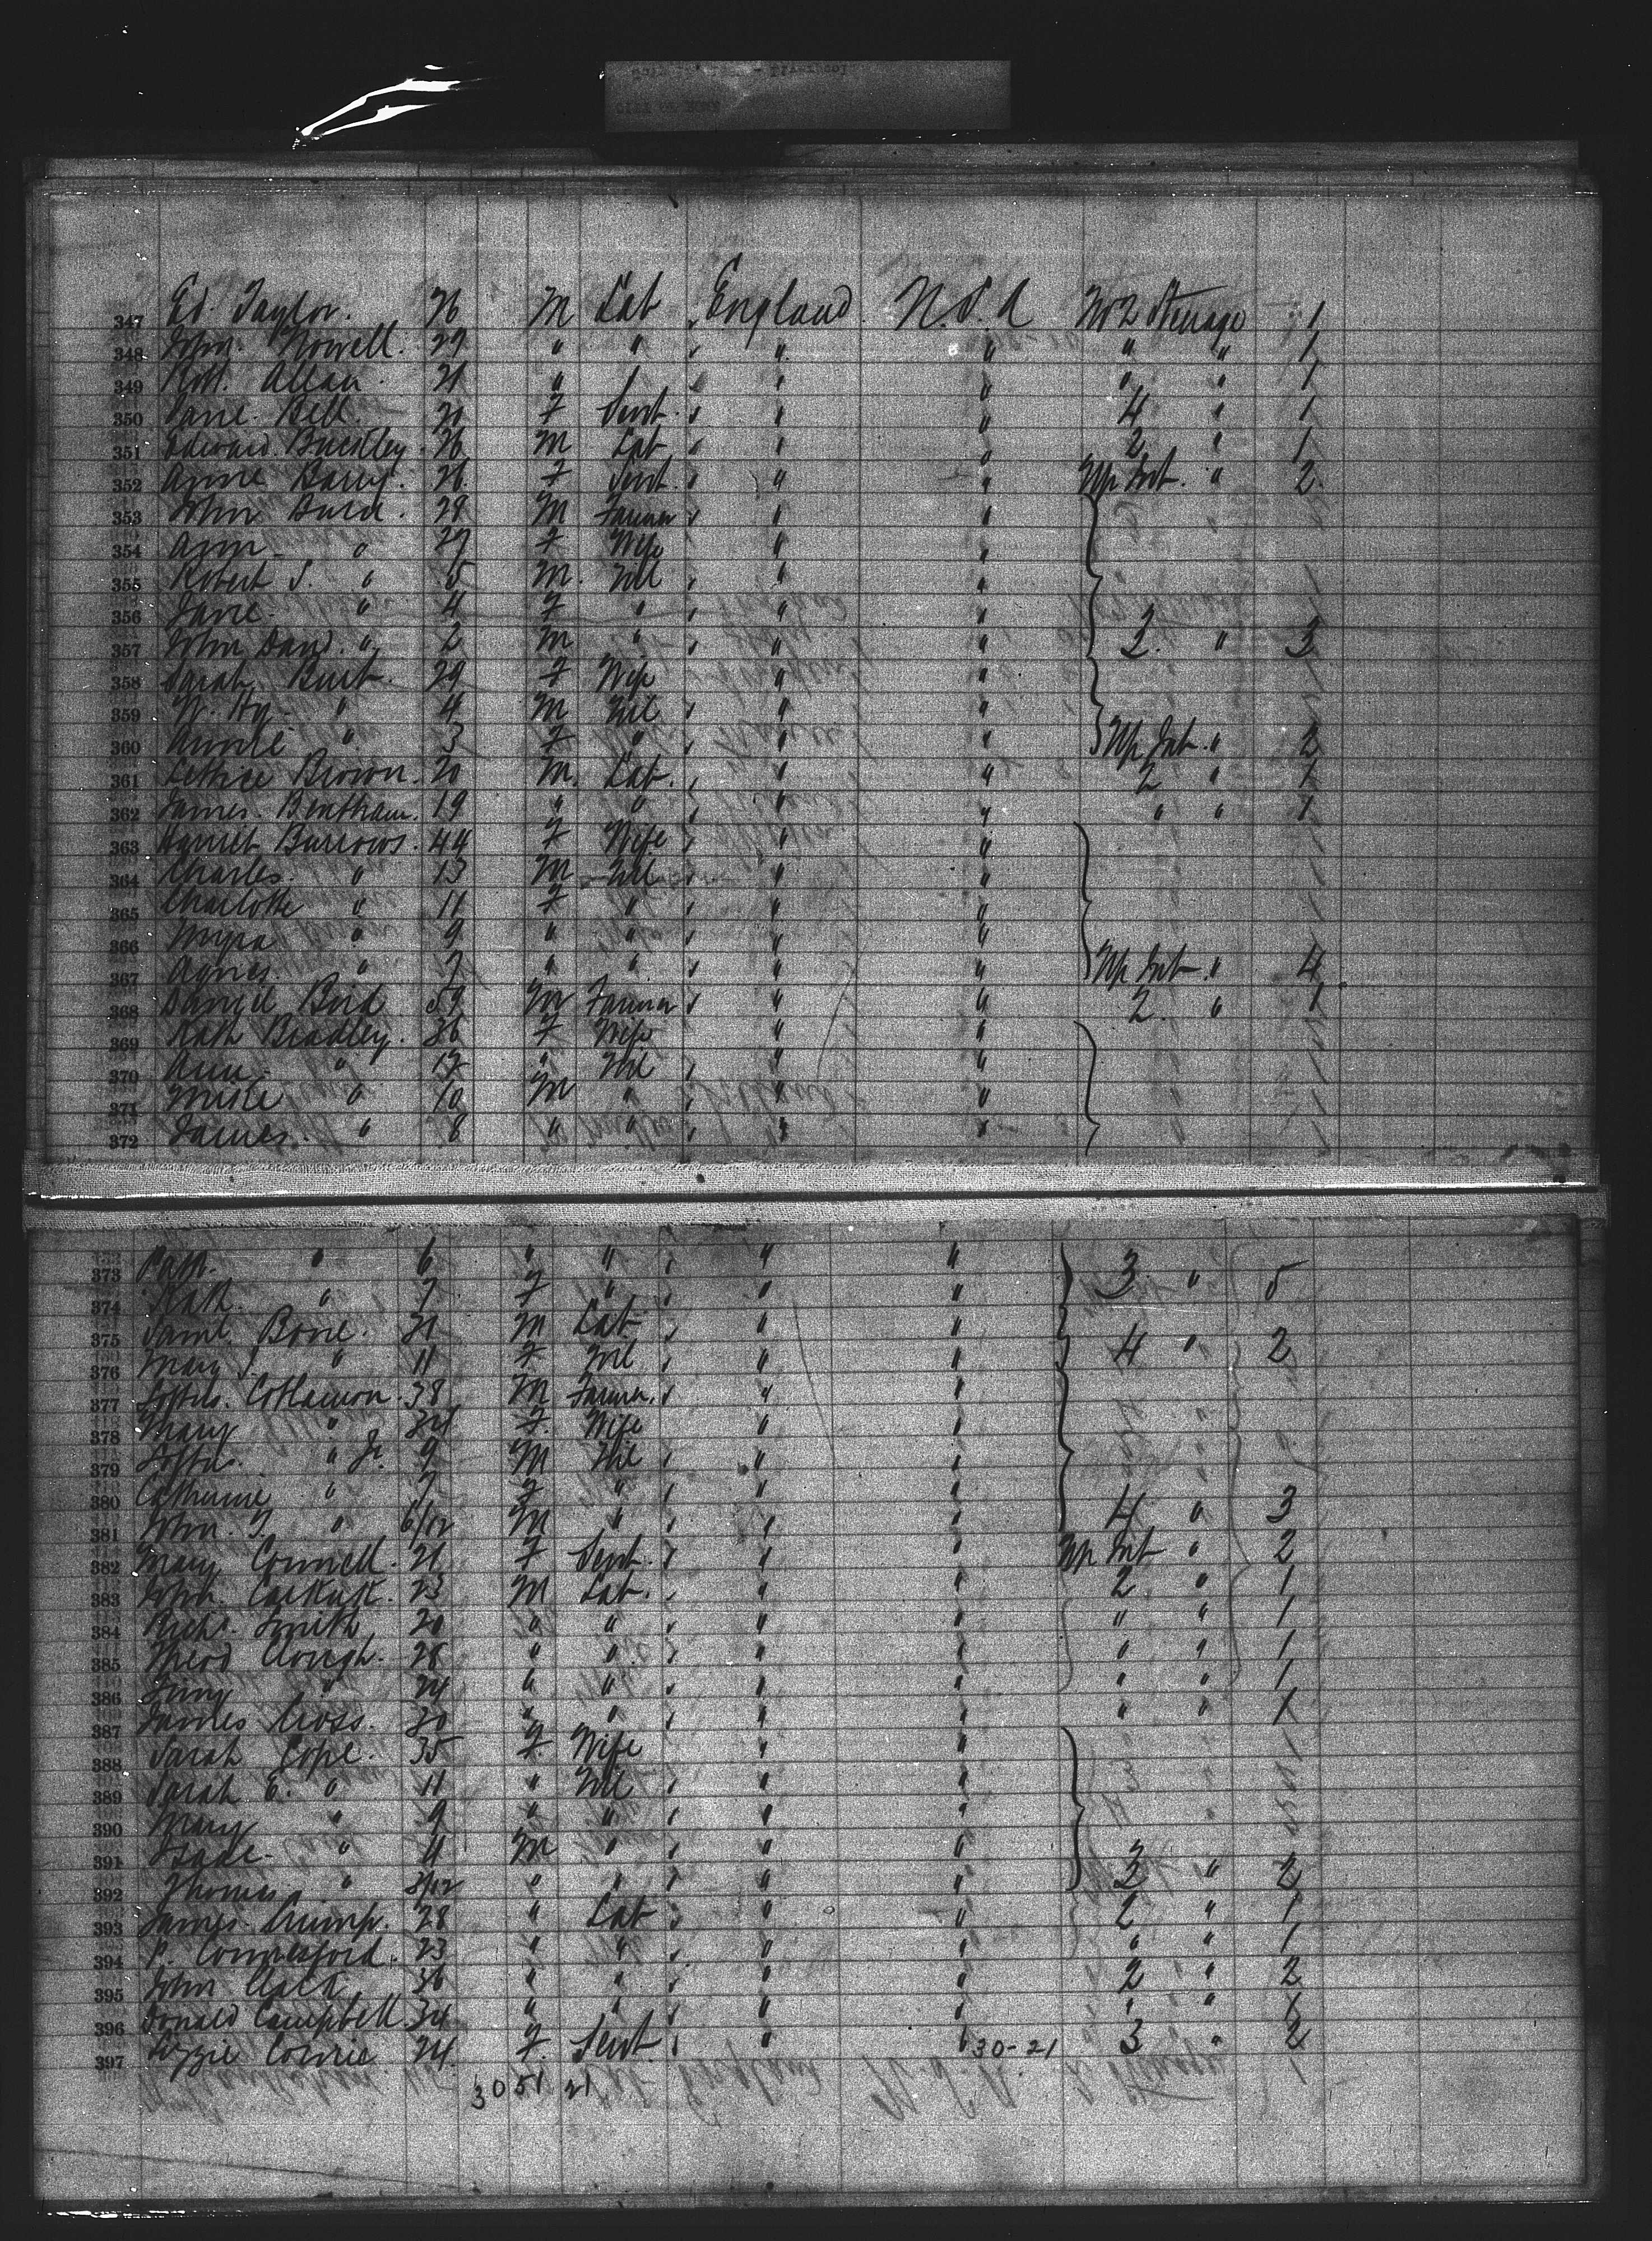 347 Ed. Taylor. 26 M Lab England U.S.A No 2 Steerage 1
348 John. Nowell. 29 " " " " " " 1
349 Robt. Allan. 21 " " " " " " 1
350 Jane. Bell. 20 F Servt. " " 4 " 1
351 Edward. Buckley. 26 M Lab " " 2 " 1
352 Annie Barry. 26. F Servt. " " Up Int. " 2.
353 John Burd. 28 M Farmer " "
354 Ann " 27 F Wife " "
355 Robert S. " 5 M. Chl " "
356 Jane. " 4 F " " "
357 John Dav. " 2 M " " " 2. " 3
358 Sarah Burt. 29 F Wife " "
359 W. Hy. " 4 M Chl " "
360 Annie " 3 F " " " Up Int. " 2
361 Lettice Brown. 20 M. Lab. " " 2 " 1
362 James. Bentham. 19 " " " " " " 1
363 Harriet Burrows. 44 F Wife " "
364 Charles. " 13 M Chl " "
365 Charlotte " 11 F " " "
366 Myra " 9 " " " "
367 Agnes. " 7 " " " " Up Int. " 4
368 Samuel Bird 59 M Farmer " " 2. " 1
369 Kath Bradley. 36 F Wife " "
370 Ann. " 12 " Chl " "
371 " 10 M " " "
372 James. " 8 " " " "
373 " 6 " " " " 3 " 5
374 Kath. " 7 F " " "
375 Saml. Bone. 31 M Lab " "
376 Mary J. " 11 F Chl " " 4 " 2
377 Loftus. 38 M Farmer. " "
378 Mary " 34 F. Wife " "
379 Loftus. " Jr. 9 M Chl " "
380 Catherine " 7 F " " "
381 John. T. " 6/12 M " " " 4 " 3
382 Mary Connell. 21 F Servt. " " Up Int " 2
383 John. 23 M Lab. " " 2 " 1
384 Richd. Smith 20 " " " " " " 1
385 Clough. 28 " " " " " " 1
386 " 24 " " " " " " 1
387 James Cross. 30 " " " " " " 1
388 Sarah Cope. 35 F. Wife " "
389 Sarah E. " 11 " Chl " "
390 Mary " 9 " " " "
391 Isaac. " 4 M " " "
392 Thomas. " 3/12 " " " " 3 " 2
393 James. Crump. 28 " Lab " " 2 " 1
394 P. 23 " " " " " " 1
395 John 36 " " " " 2 " 2
396 Donald Campbell. 34 " " " " " " 1
397 Lizzie Cowrie 24. F. Servt. " " 30-21 3 " 2
3051 21